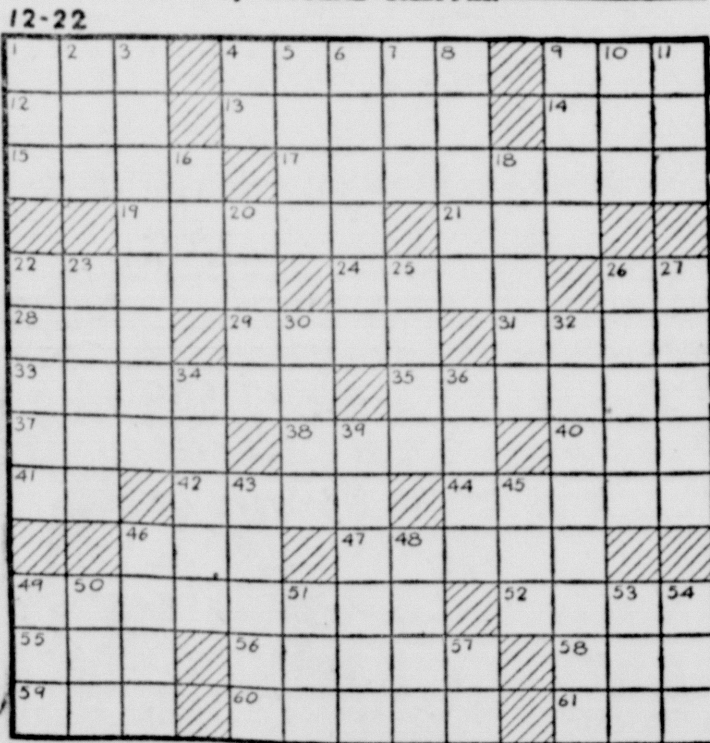 12-22
1 2 3 4 5 6 7 8 9 10 11
12 13 14
15 16 17 18
19 20 21
22 23 24 25 26 27
28 29 30 31 32
33 34 35 36
37 38 39 40
41 42 43 44 45
46 47 48
49 50 51 52 53 54
55 56 57 58
59 60 61